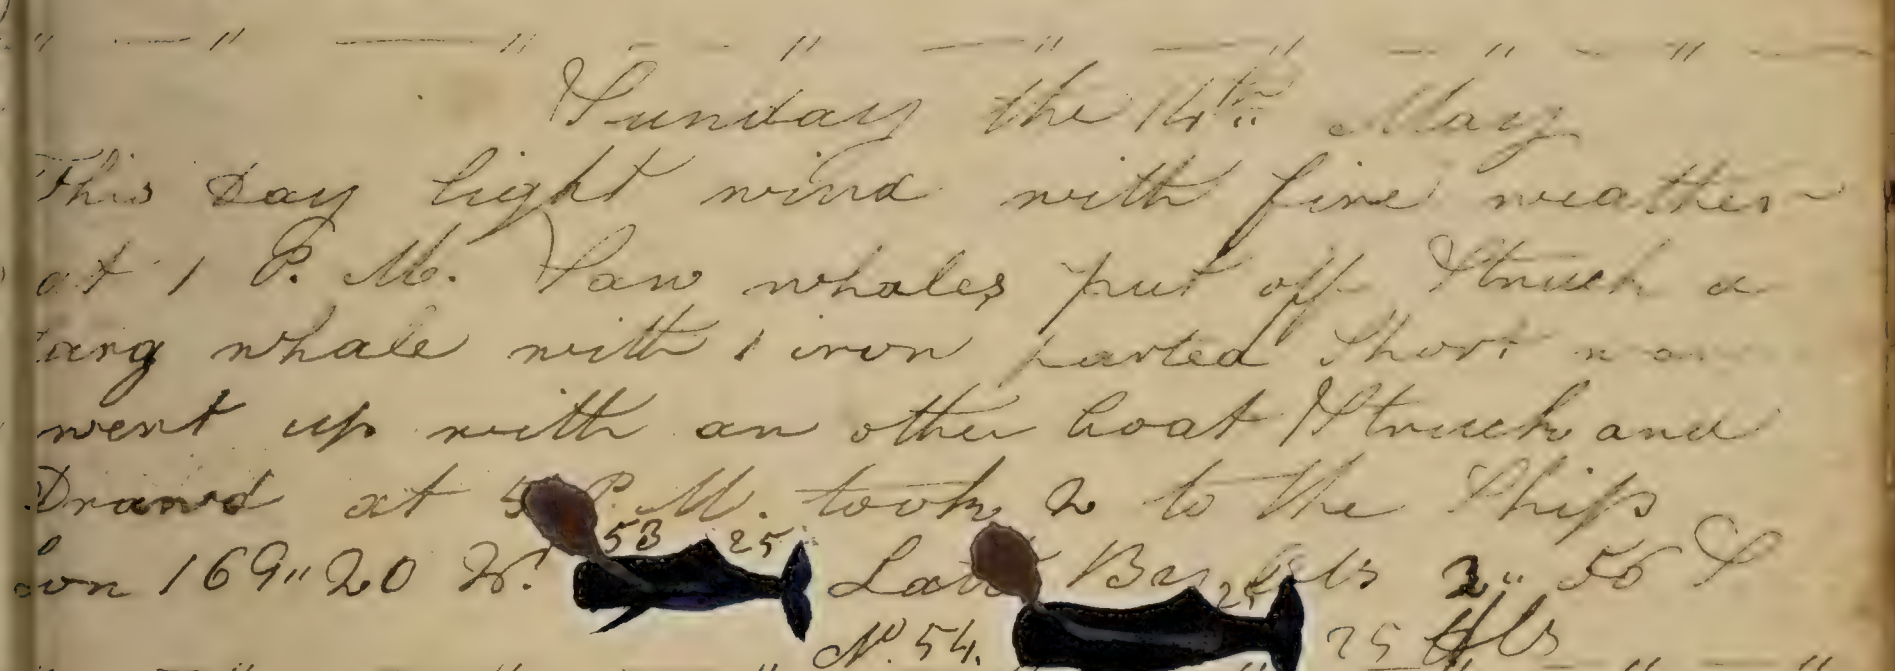 Sunday the 14th May
This Day light wind with fine weather
at 1 P. M. Saw whales put off Struck a
larg whale with 1 iron parted Short
went up with an other boat Struck and
Drawd at 5 P. M. took 2 to the Ship
Lon 169" 20 W. 53 25 Lat 2" 56 S
No 54. 25 Bbls